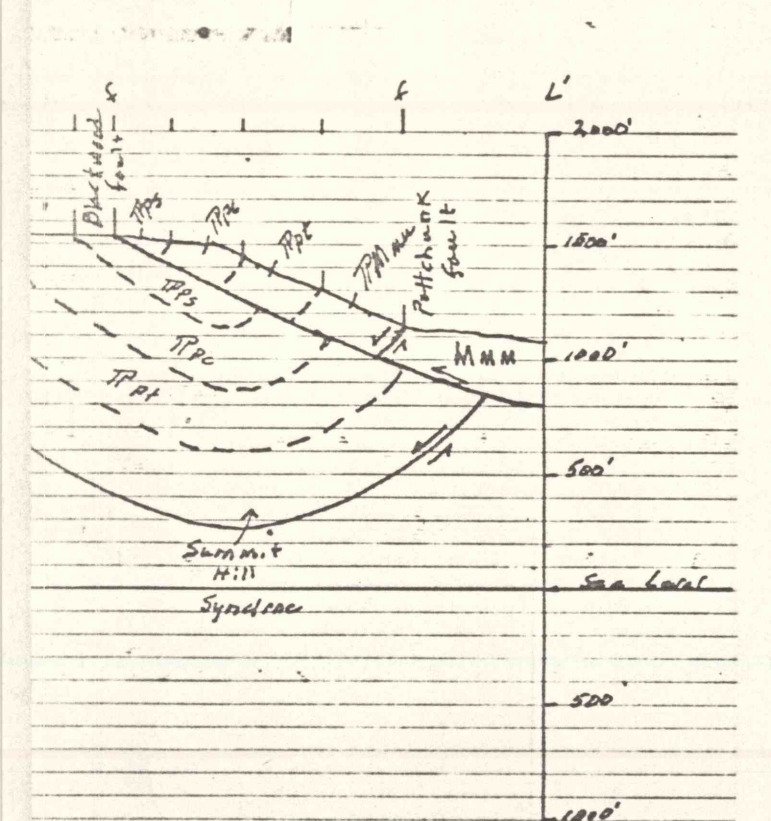 f f L'
2000'
Blackwood
fault
Pps Ppc Ppt PMmu
Pottchunk
fault
1500'
Pps
Ppc
Ppt
Mmm
1000'
500'
Summit
Hill
Syncline
Sea Level
500
1000'